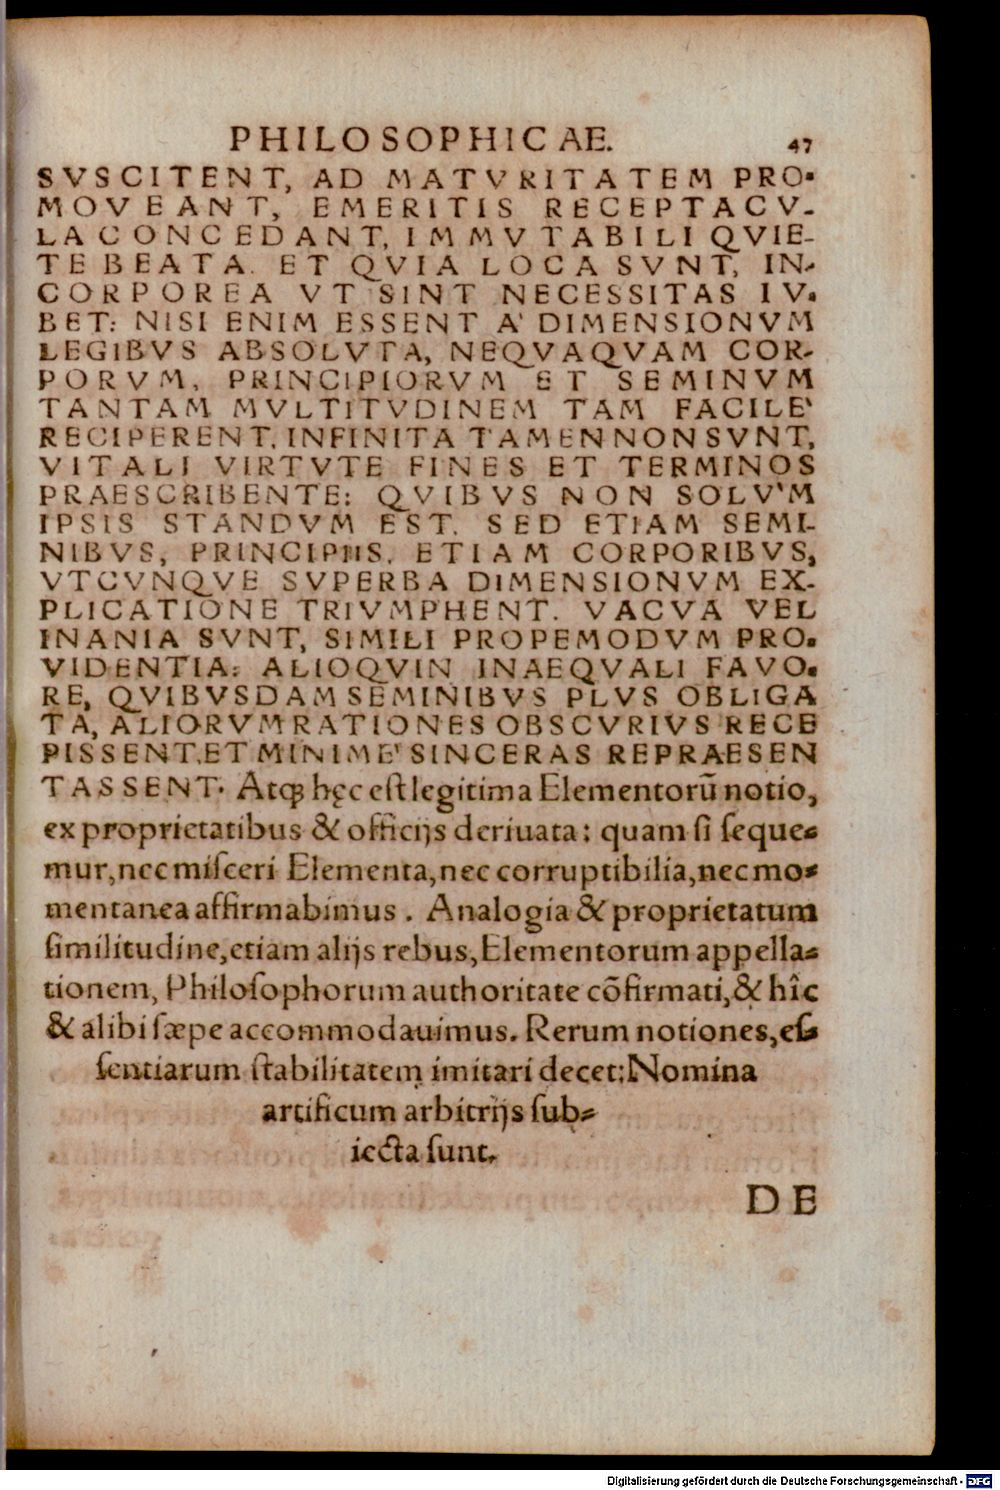 PHILOSOPHICAE. 47
SVSCITENT, AD MATVRITATEM PRO-
MOVEANT, EMERITIS RECEPTACV-
LA CONCEDANT, IMMVTABILI QVIE-
TE BEATA. ET QVIA LOCA SVNT, IN-
CORPOREA VT SINT NECESSITAS IV-
BET: NISI ENIM ESSENT A' DIMENSIONVM
LEGIBVS ABSOLVTA, NEQVAQVAM COR-
PORVM, PRINCIPIORVM ET SEMINVM
TANTAM MVLTITVDINEM TAM FACILE'
RECIPERENT. INFINITA TAMEN NON SVNT,
VITALI VIRTVTE FINES ET TERMINOS
PRAESCRIBENTE: QVIBVS NON SOLV'M
IPSIS STANDVM EST, SED ETIAM SEMI-
NIBVS, PRINCIPIIS, ETIAM CORPORIBVS,
VTCVNQVE SVPERBA DIMENSIONVM EX-
PLICATIONE TRIVMPHENT. VACVA VEL
INANIA SVNT, SIMILI PROPEMODVM PRO-
VIDENTIA: ALIOQVIN INAEQVALI FAVO-
RE, QVIBVSDAM SEMINIBVS PLVS OBLIGA
TA, ALIORVM RATIONES OBSCVRIVS RECE
PISSENT, ET MINIME' SINCERAS REPRAESEN
TASSENT. Atqꝫ hęc est legitima Elementorũ notio,
ex proprietatibus & officijs deriuata: quam si seque-
mur, nec misceri Elementa, nec corruptibilia, nec mo-
mentanea affirmabimus. Analogia & proprietatum
similitudine, etiam alijs rebus, Elementorum appella-
tionem, Philosophorum authoritate cõfirmati, & hîc
& alibi sæpe accommodauimus. Rerum notiones, es-
sentiarum stabilitatem imitari decet: Nomina
artificum arbitrijs sub-
iecta sunt.
DE
Digitalisierung gefördert durch die Deutsche Forschungsgemeinschaft - DFG